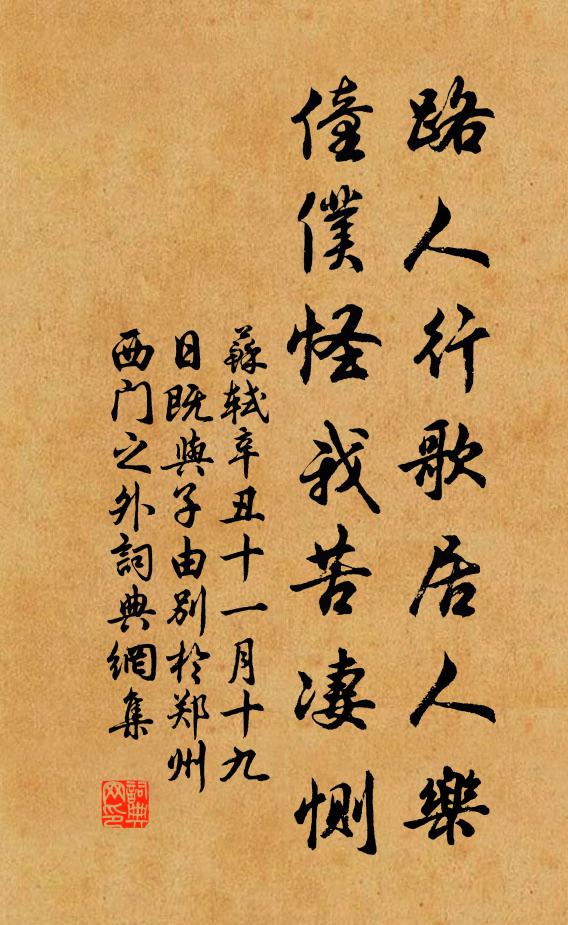 路人行歌居人樂
僮僕怪我苦凄惻
蘇軾辛丑十一月十九
日既與子由別於郑州
西门之外詞典網集
詞典网印